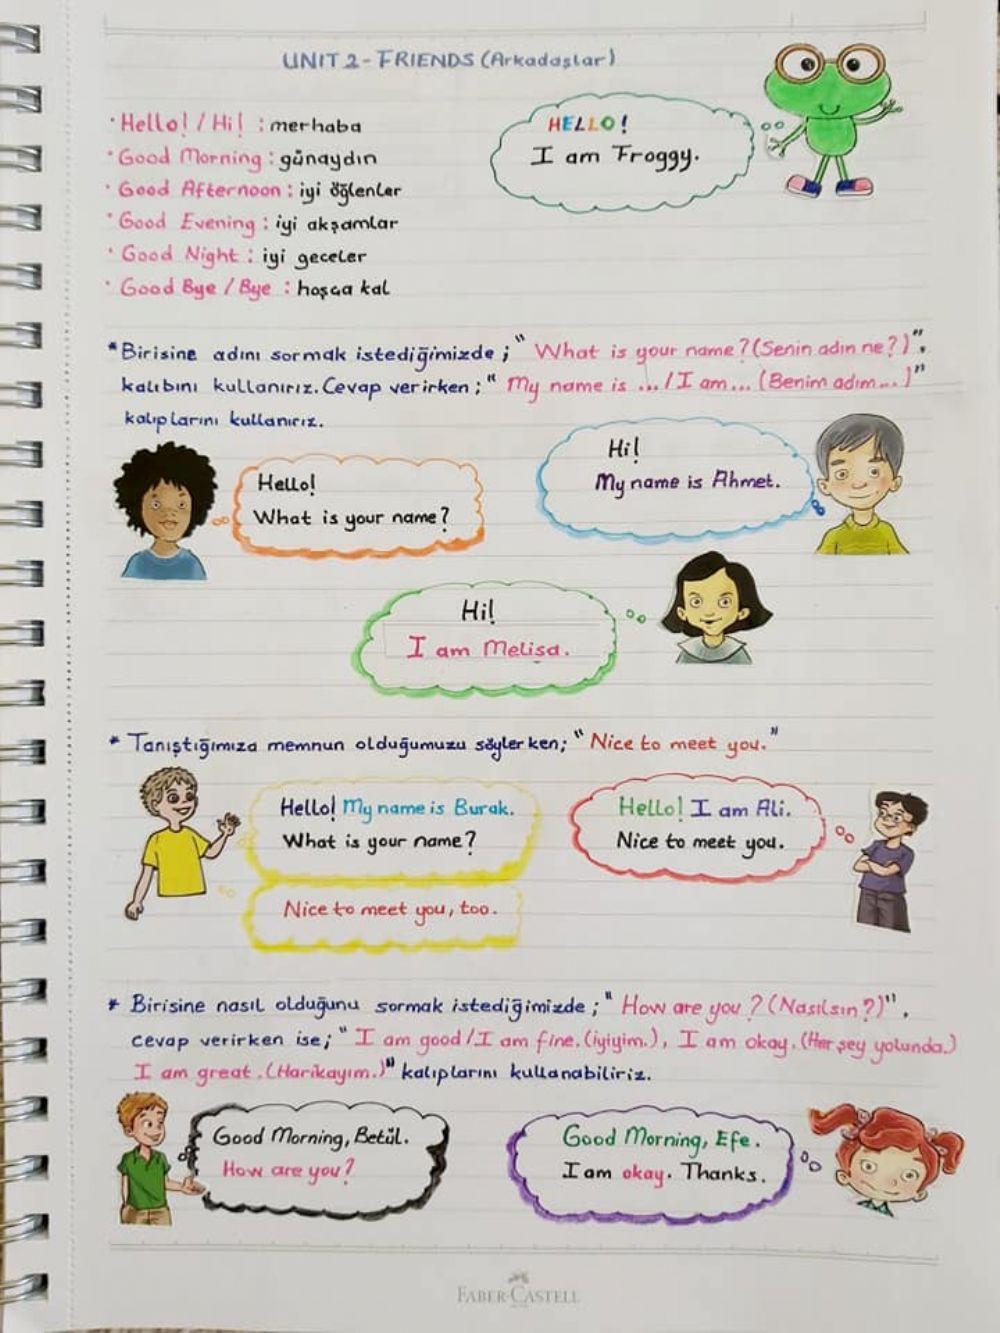 UNIT 2 - FRIENDS (Arkadaşlar)
• Hello! / Hi! : merhaba
• Good Morning : günaydın
• Good Afternoon : iyi öğlenler
• Good Evening : iyi akşamlar
• Good Night : iyi geceler
• Good Bye / Bye : hoşça kal
HELLO!
I am Froggy.
* Birisine adını sormak istediğimizde ; " What is your name? (Senin adın ne?)".
kalıbını kullanırız. Cevap verirken ; " My name is ... / I am ... (Benim adım...)"
kalıplarını kullanırız.
Hello!
What is your name?
Hi!
My name is Ahmet.
Hi!
I am Melisa.
* Tanıştığımıza memnun olduğumuzu söylerken; " Nice to meet you."
Hello! My name is Burak.
What is your name?
Hello! I am Ali.
Nice to meet you.
Nice to meet you, too.
* Birisine nasıl olduğunu sormak istediğimizde ; " How are you? (Nasılsın?)",
cevap verirken ise; " I am good / I am fine. (iyiyim.), I am okay. (Her şey yolunda.)
I am great. (Harikayım.)" kalıplarını kullanabiliriz.
Good Morning, Betül.
How are you?
Good Morning, Efe.
I am okay. Thanks.
FABER-CASTELL